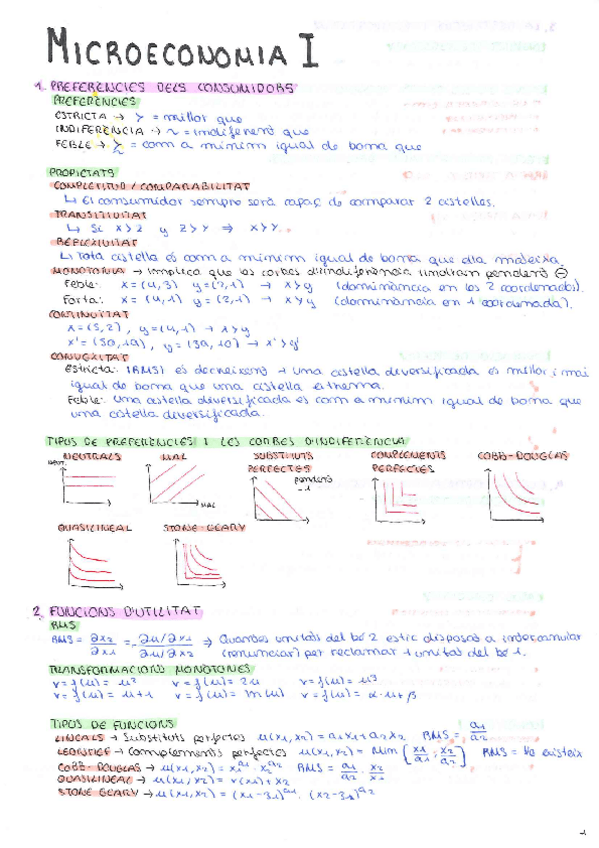 MICROECONOMIA I
1. PREFERÈNCIES DELS CONSUMIDORS
PREFERÈNCIES
ESTRICTA → ≻ = millor que
INDIFERÈNCIA → ~ = indiferent que
FEBLE → ≿ = com a mínim igual de bona que
PROPIETATS
COMPLETITUD / COMPARABILITAT
↳ El consumidor sempre serà capaç de comparar 2 cistelles.
TRANSITIVITAT
↳ Si x≻z y z≻y ⇒ x≻y.
REFLEXIVITAT
↳ Tota cistella és com a mínim igual de bona que ella mateixa.
MONOTONIA → implica que les corbes d'indiferència tindran pendent ⊖
Feble: x=(4,3) y=(2,1) → x≻y (dominància en les 2 coordenades).
Forta: x=(4,1) y=(2,1) → x≻y (dominància en 1 coordenada).
CONTINUÏTAT
x=(5,2), y=(4,1) → x≻y
x'=(50,19), y=(39,10) → x'≻y'
CONVEXITAT
Estricta: |RMS| és decreixent → una cistella diversificada és millor i mai
igual de bona que una cistella extrema.
Feble: una cistella diversificada és com a mínim igual de bona que
una cistella diversificada.
TIPUS DE PREFERÈNCIES I LES CORBES D'INDIFERÈNCIA
NEUTRALS MAL SUBSTITUTS PERFECTES COMPLEMENTS PERFECTES COBB-DOUGLAS
NEUT. MAL pendent -1
QUASILINEAL STONE-GEARY
2. FUNCIONS D'UTILITAT
RMS
RMS = ∂x2/∂x1 = - ∂u/∂x1 / ∂u/∂x2 → Quantes unitats del bé 2 estic disposat a intercanviar
(renunciar) per reclamar 1 unitat del bé 1.
TRANSFORMACIONS MONÒTONES
v=f(u)=u² v=f(u)=2u v=f(u)=u³
v=f(u)=u+1 v=f(u)=ln(u) v=f(u)=α·u+β
TIPUS DE FUNCIONS
LINEALS → Substituts perfectes u(x1,x2)=a1x1+a2x2 RMS = a1/a2
LEONTIEF → Complements perfectes u(x1,x2)=Mim[x1/a1; x2/a2] RMS = No existeix
COBB-DOUGLAS → u(x1,x2)=x1^a1·x2^a2 RMS = a1/a2 · x2/x1
QUASILINEAL → u(x1,x2)=v(x1)+x2
STONE GEARY → u(x1,x2)=(x1-31)^a1·(x2-32)^a2
1